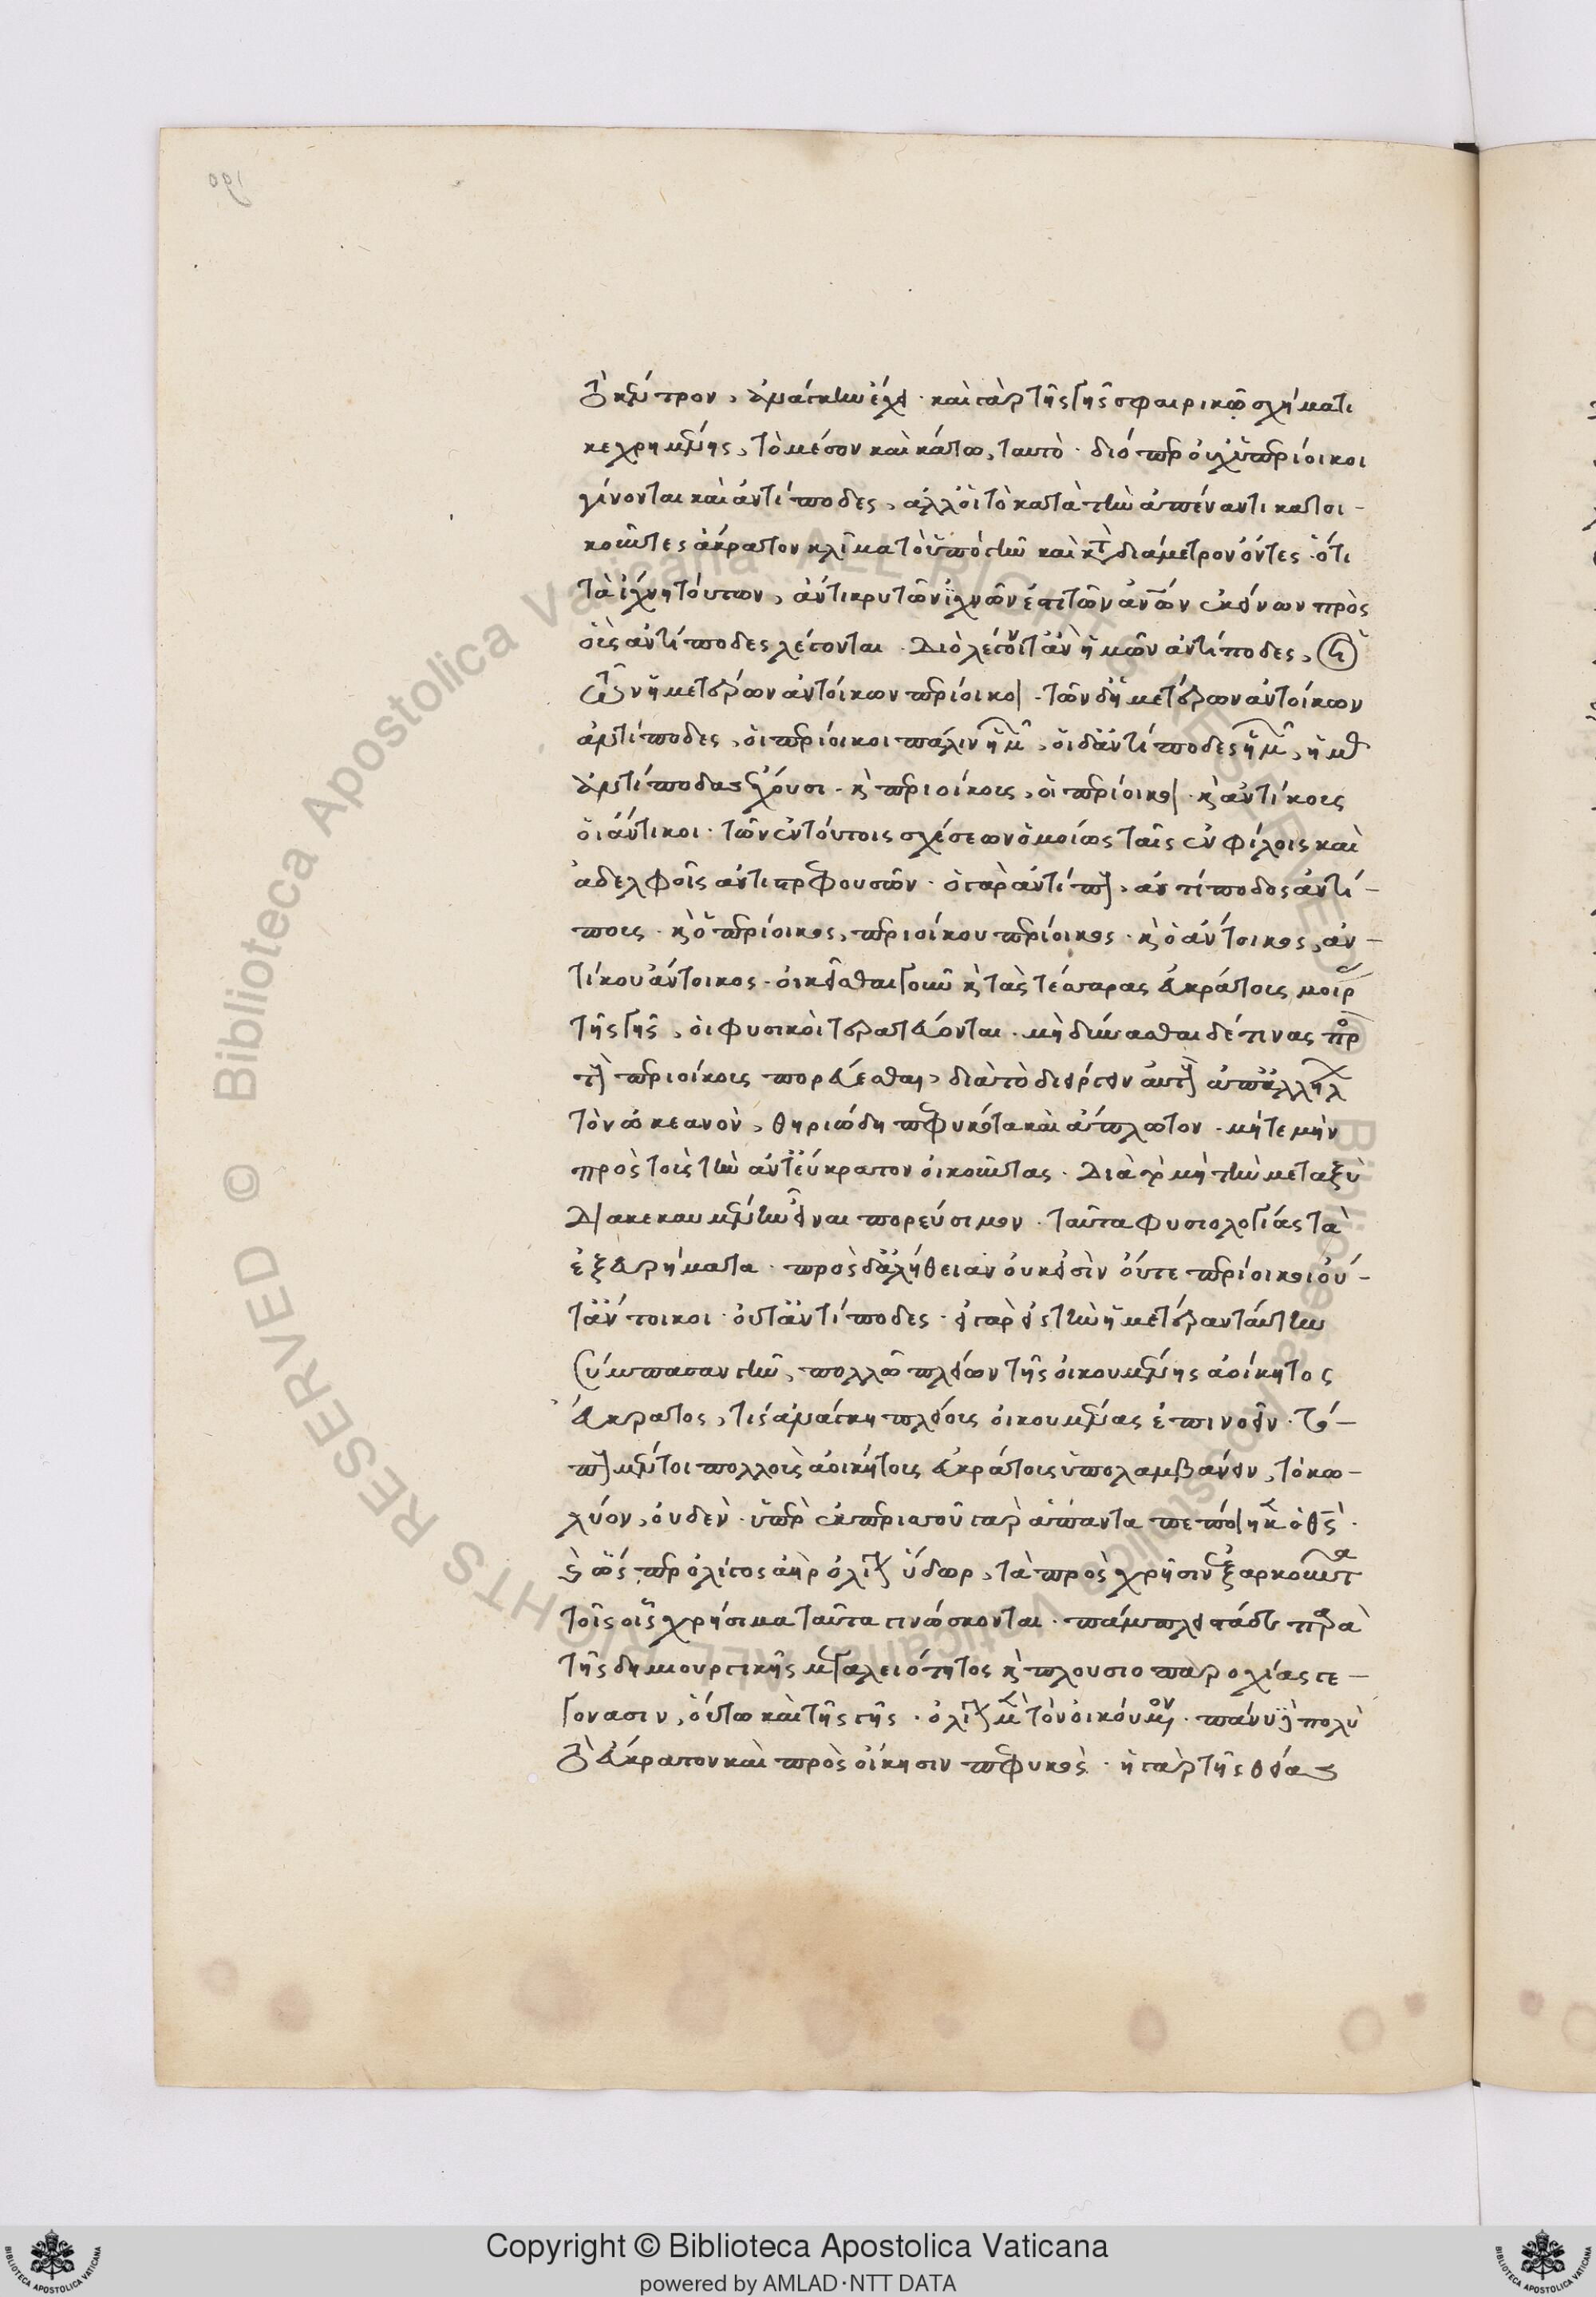 τὸ κέντρον, ἀνάγκην ἔχει. καὶ γὰρ τῆς γῆς σφαιρικῷ σχήματι
κεχρημένης, τὸ μέσον καὶ κάτω, ταυτὸ. διόπερ οὐχ οἱ περίοικοι
γίνονται καὶ ἀντίποδες, ἀλλ' οἱ τὸ κατὰ τὴν ἀπέναντι κατοι-
κοῦντες ἄκρατον κλῖμα τὸ ὑπὸ γῆν καὶ κατὰ διάμετρον ὄντες. ὅτι
τὰ ἴχνη τούτων, ἀντικρυ τῶν ἰχνῶν ἐστι τῶν ἀνῶν ἐκείνων πρὸς
οὓς ἀντίποδες λέγονται. Διὸ λέγοιντ' ἂν ἡμῶν ἀντίποδες,
τῶν ἡμετέρων ἀντοίκων περίοικοι. τῶν δ' ἡμετέρων ἀντοίκων
ἀντίποδες, οἱ περίοικοι πάλιν ἡμῶν, οἱ δ' ἀντίποδες ἡμῶν, ἡμᾶς
ἀντίποδας ἔχουσι. καὶ περιοίκους, οἱ περίοικοι. καὶ ἀντίκους
οἱ ἄντικοι. τῶν ἐν τούτοις σχέσεων ὁμοίως ταῖς ἐν φίλοις καὶ
ἀδελφοῖς ἀντιστρεφουσῶν. ὁ γὰρ ἀντίπους, ἀντίποδος ἀντί-
πους. καὶ ὁ περίοικος, περιοίκου περίοικος. καὶ ὁ ἄντοικος, ἀν-
τίκου ἄντοικος. οἰκεῖσθαι γοῦν καὶ τὰς τέσσαρας εὐκράτους μοίρας
τῆς γῆς, οἱ φυσικοὶ τερατεύονται. μὴ δύνασθαι δέ τινας πρὸς
τοὺς περιοίκους πορεύεσθαι, διὰ τὸ διείργειν αὐτοὺς ἀπ' ἀλλήλων
τὸν ὠκεανὸν, θηριώδη πεφυκότα καὶ ἄπλωτον. μήτε μὴν
πρὸς τοὺς τὴν ἀντεύκρατον οἰκοῦντας. Διὰ τὸ μὴ τὴν μεταξὺ
διακεκαυμένην εἶναι πορεύσιμον. ταῦτα φυσιολογίας τὰ
ἐξευρήματα. πρὸς δ' ἀλήθειαν οὐκ εἰσὶν οὔτε περίοικοι οὔ-
τ' ἄντοικοι. οὔτ' ἀντίποδες. εἰ γὰρ εἰς τὴν ἡμετέραν ταύτην
σύμπασαν γῆν, πολλῷ πλείων τῆς οἰκουμένης ἀοίκητος
εὔκρατος, τίς ἀνάγκη πλείους οἰκουμένας ἐπινοεῖν. τό-
πους μέντοι πολλοὺς ἀοικήτους εὐκράτους ὑπολαμβάνειν, τὸ κω-
λύον, οὐδέν. ὑπὲρ ἐκ περισσοῦ γὰρ ἅπαντα πεποίηκεν ὁ θς.
καὶ ὥσπερ ὀλίγος ἀὴρ ὀλίγον ὕδωρ, τὰ πρὸς χρῆσιν ἐξαρκοῦντα
τοῖς οἷς χρήσιμα ταῦτα γινώσκονται. πάμπλειστα δὲ παρὰ
τῆς δημιουργικῆς μεγαλειότητος καὶ πλουσιοπαροχίας γε-
γόνασιν, οὕτω καὶ τῆς γῆς. ὀλίγον μὲν τὸ νῦν οἰκούμενον. πάνυ δὲ πολὺ
τὸ εὔκρατον καὶ πρὸς οἴκησιν πεφυκὸς. ἡ γὰρ τῆς θείας